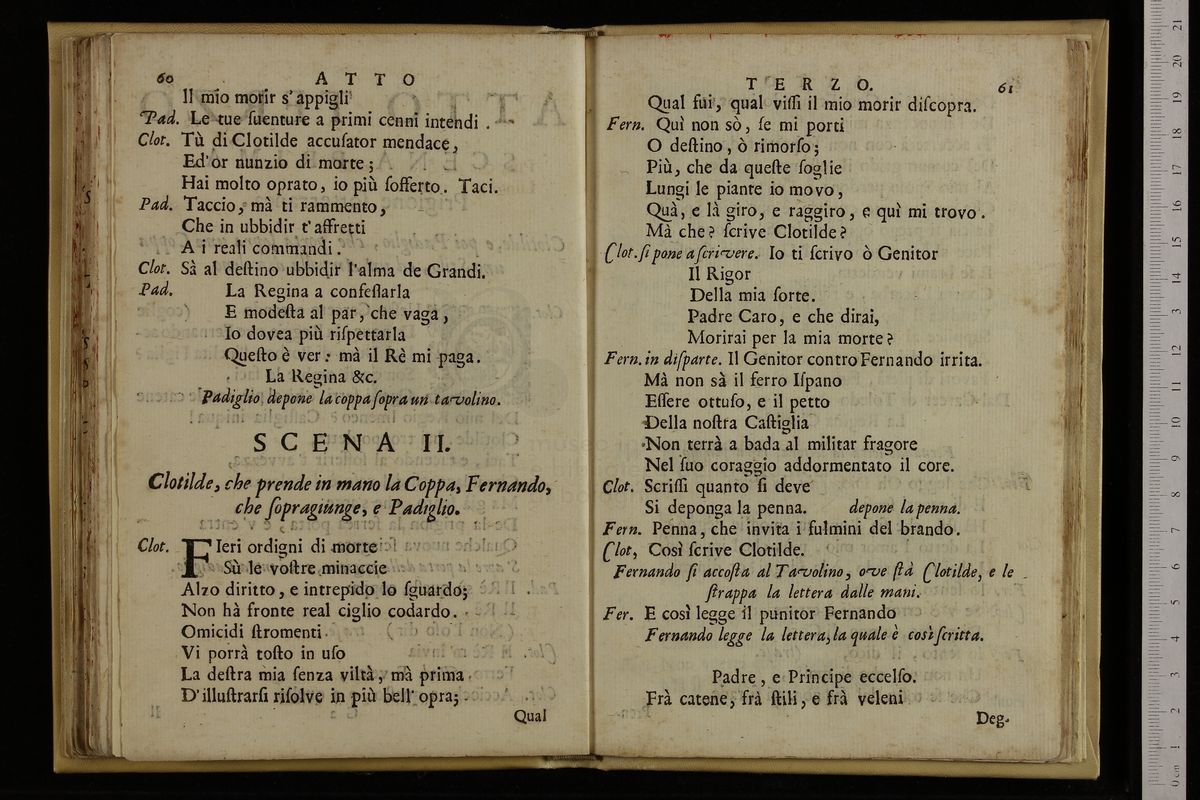 60 ATTO
Il mio morir s'appigli
Pad. Le tue ſuenture a primi cenni intendi .
Clot. Tù di Clotilde accuſator mendace,
Ed'or nunzio di morte ;
Hai molto oprato, io più ſofferto. Taci.
Pad. Taccio, mà ti rammento,
Che in ubbidir t'affretti
A i reali commandi .
Clot. Sà al deſtino ubbidir l'alma de Grandi.
Pad. La Regina a confeſſarla
E modeſta al par, che vaga ,
Io dovea più riſpettarla
Queſto è ver : mà il Rè mi paga.
La Regina &c.
Padiglio depone la coppa ſopra un tavolino.
SCENA II.
Clotilde, che prende in mano la Coppa, Fernando,
che ſopragiunge, e Padiglio.
Clot. FIeri ordigni di morte
Sù le voſtre minaccie
Alzo diritto, e intrepido lo ſguardo;
Non hà fronte real ciglio codardo.
Omicidi ſtromenti
Vi porrà toſto in uſo
La deſtra mia ſenza viltà, mà prima
D'illuſtrarſi riſolve in più bell' opra;
Qual
TERZO. 61
Qual fui, qual viſſi il mio morir diſcopra.
Fern. Quì non sò, ſe mi porti
O deſtino, ò rimorſo ;
Più, che da queſte ſoglie
Lungi le piante io movo,
Quà, e là giro, e raggiro, e quì mi trovo .
Mà che ? ſcrive Clotilde ?
Clot. ſi pone a ſcrivere. Io ti ſcrivo ò Genitor
Il Rigor
Della mia ſorte.
Padre Caro, e che dirai,
Morirai per la mia morte ?
Fern. in diſparte. Il Genitor contro Fernando irrita.
Mà non sà il ferro Iſpano
Eſſere ottuſo, e il petto
Della noſtra Caſtiglia
Non terrà a bada al militar fragore
Nel ſuo coraggio addormentato il core.
Clot. Scriſſi quanto ſi deve
Si deponga la penna. depone la penna.
Fern. Penna, che invita i fulmini del brando.
Clot, Così ſcrive Clotilde.
Fernando ſi accoſta al Tavolino, ove ſtà Clotilde, e le
ſtrappa la lettera dalle mani.
Fer. E così legge il punitor Fernando
Fernando legge la lettera, la quale è così ſcritta.
Padre , e Principe eccelſo.
Frà catene, frà ſtili, e frà veleni
Deg-